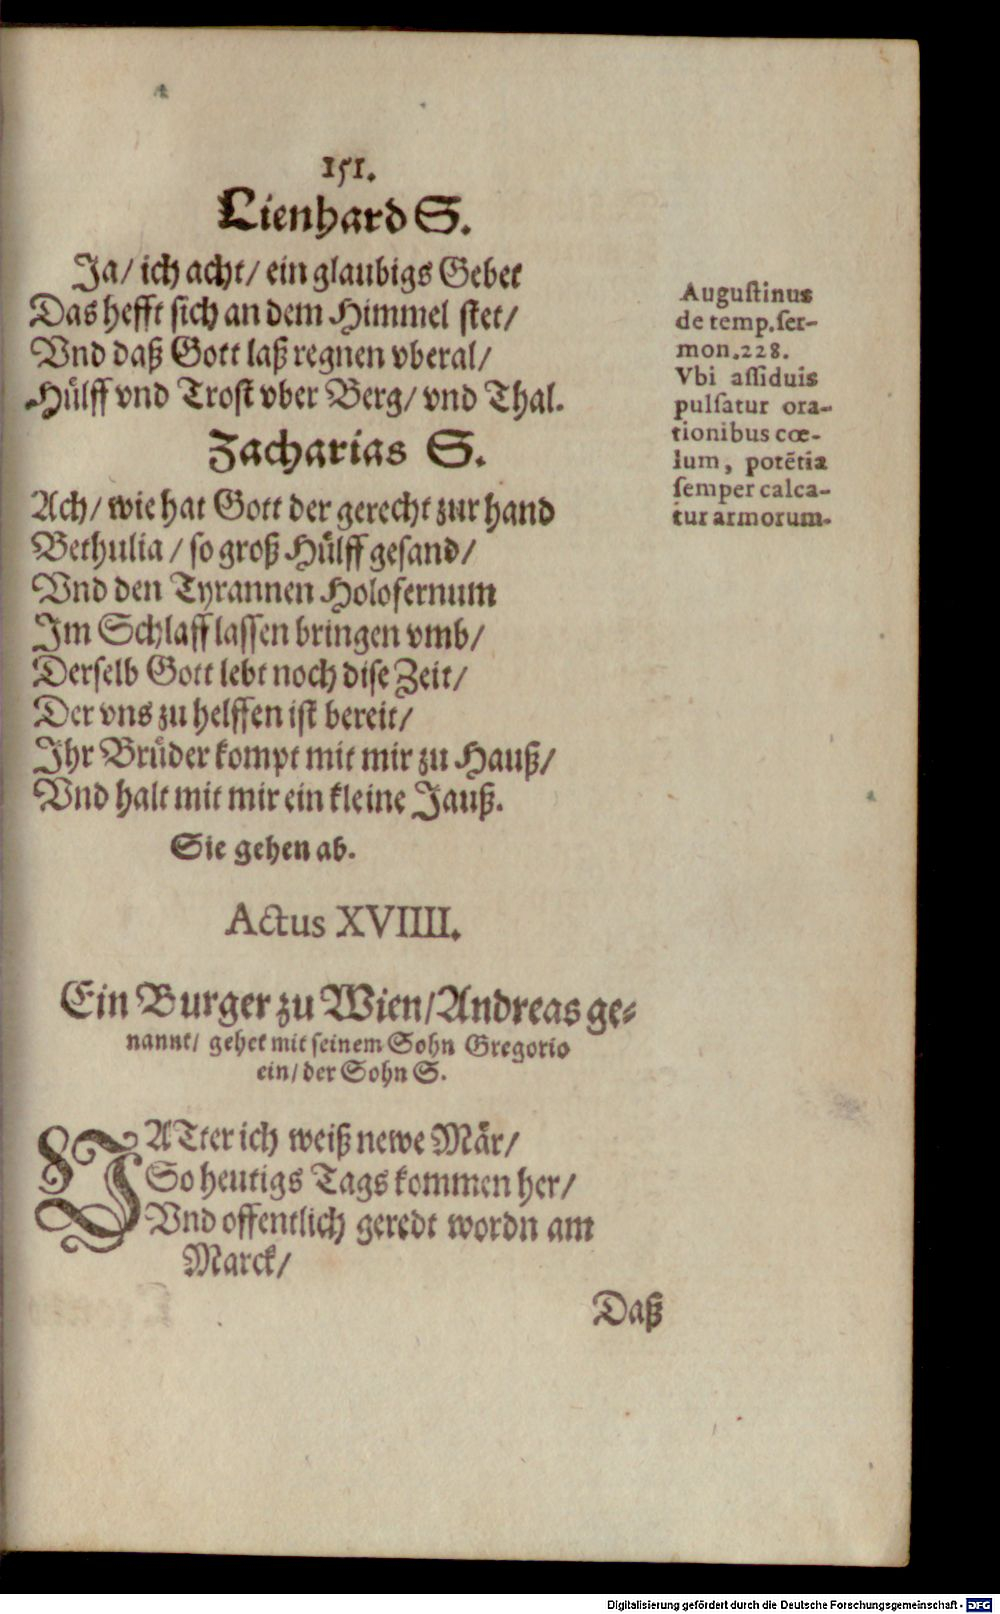 151.
Lienhard S.
Ja/ ich acht/ ein glaubigs Gebet
Das hefft sich an dem Himmel stet/
Vnd daß Gott laß regnen vberal/
Hülff vnd Trost vber Berg/ vnd Thal.
Zacharias S.
Ach/ wie hat Gott der gerecht zur hand
Bethulia / so groß Hülff gesand/
Vnd den Tyrannen Holofernum
Im Schlaff lassen bringen vmb/
Derselb Gott lebt noch dise Zeit/
Der vns zu helffen ist bereit/
Ihr Brüder kompt mit mir zu Hauß/
Vnd halt mit mir ein kleine Jauß.
Sie gehen ab.
Augustinus
de temp. ser-
mon. 228.
Vbi assiduis
pulsatur ora-
tionibus cœ-
lum, potẽtia
semper calca-
tur armorum.
Actus XVIIII.
Ein Burger zu Wien/ Andreas ge-
nannt/ gehet mit seinem Sohn Gregorio
ein/ der Sohn S.
VATter ich weiß newe Mär/
So heutigs Tags kommen her/
Vnd offentlich geredt wordn am
Marck/
Daß
Digitalisierung gefördert durch die Deutsche Forschungsgemeinschaft - DFG